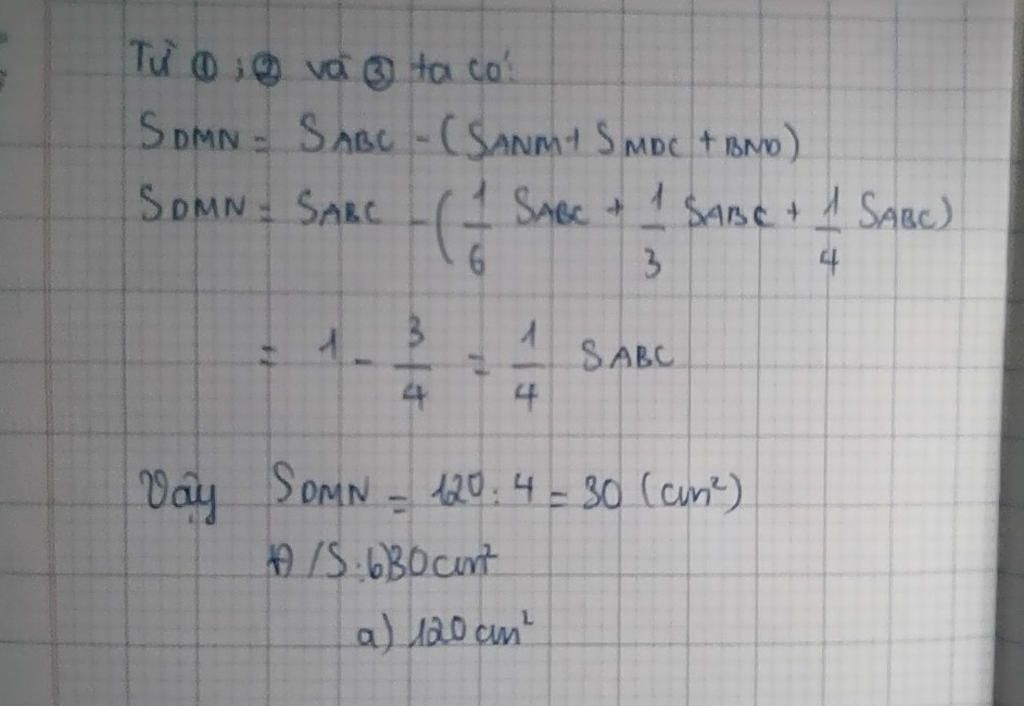 Từ ①; ② và ③ ta có:
SDMN = SABC - (SANM + SMDC + BND)
SDMN = SABC - (1/6 SABC + 1/3 SABC + 1/4 SABC)
= 1 - 3/4 = 1/4 SABC
Vậy SDMN = 120 : 4 = 30 (cm²)
Đ/S: b) 30 cm²
a) 120 cm²